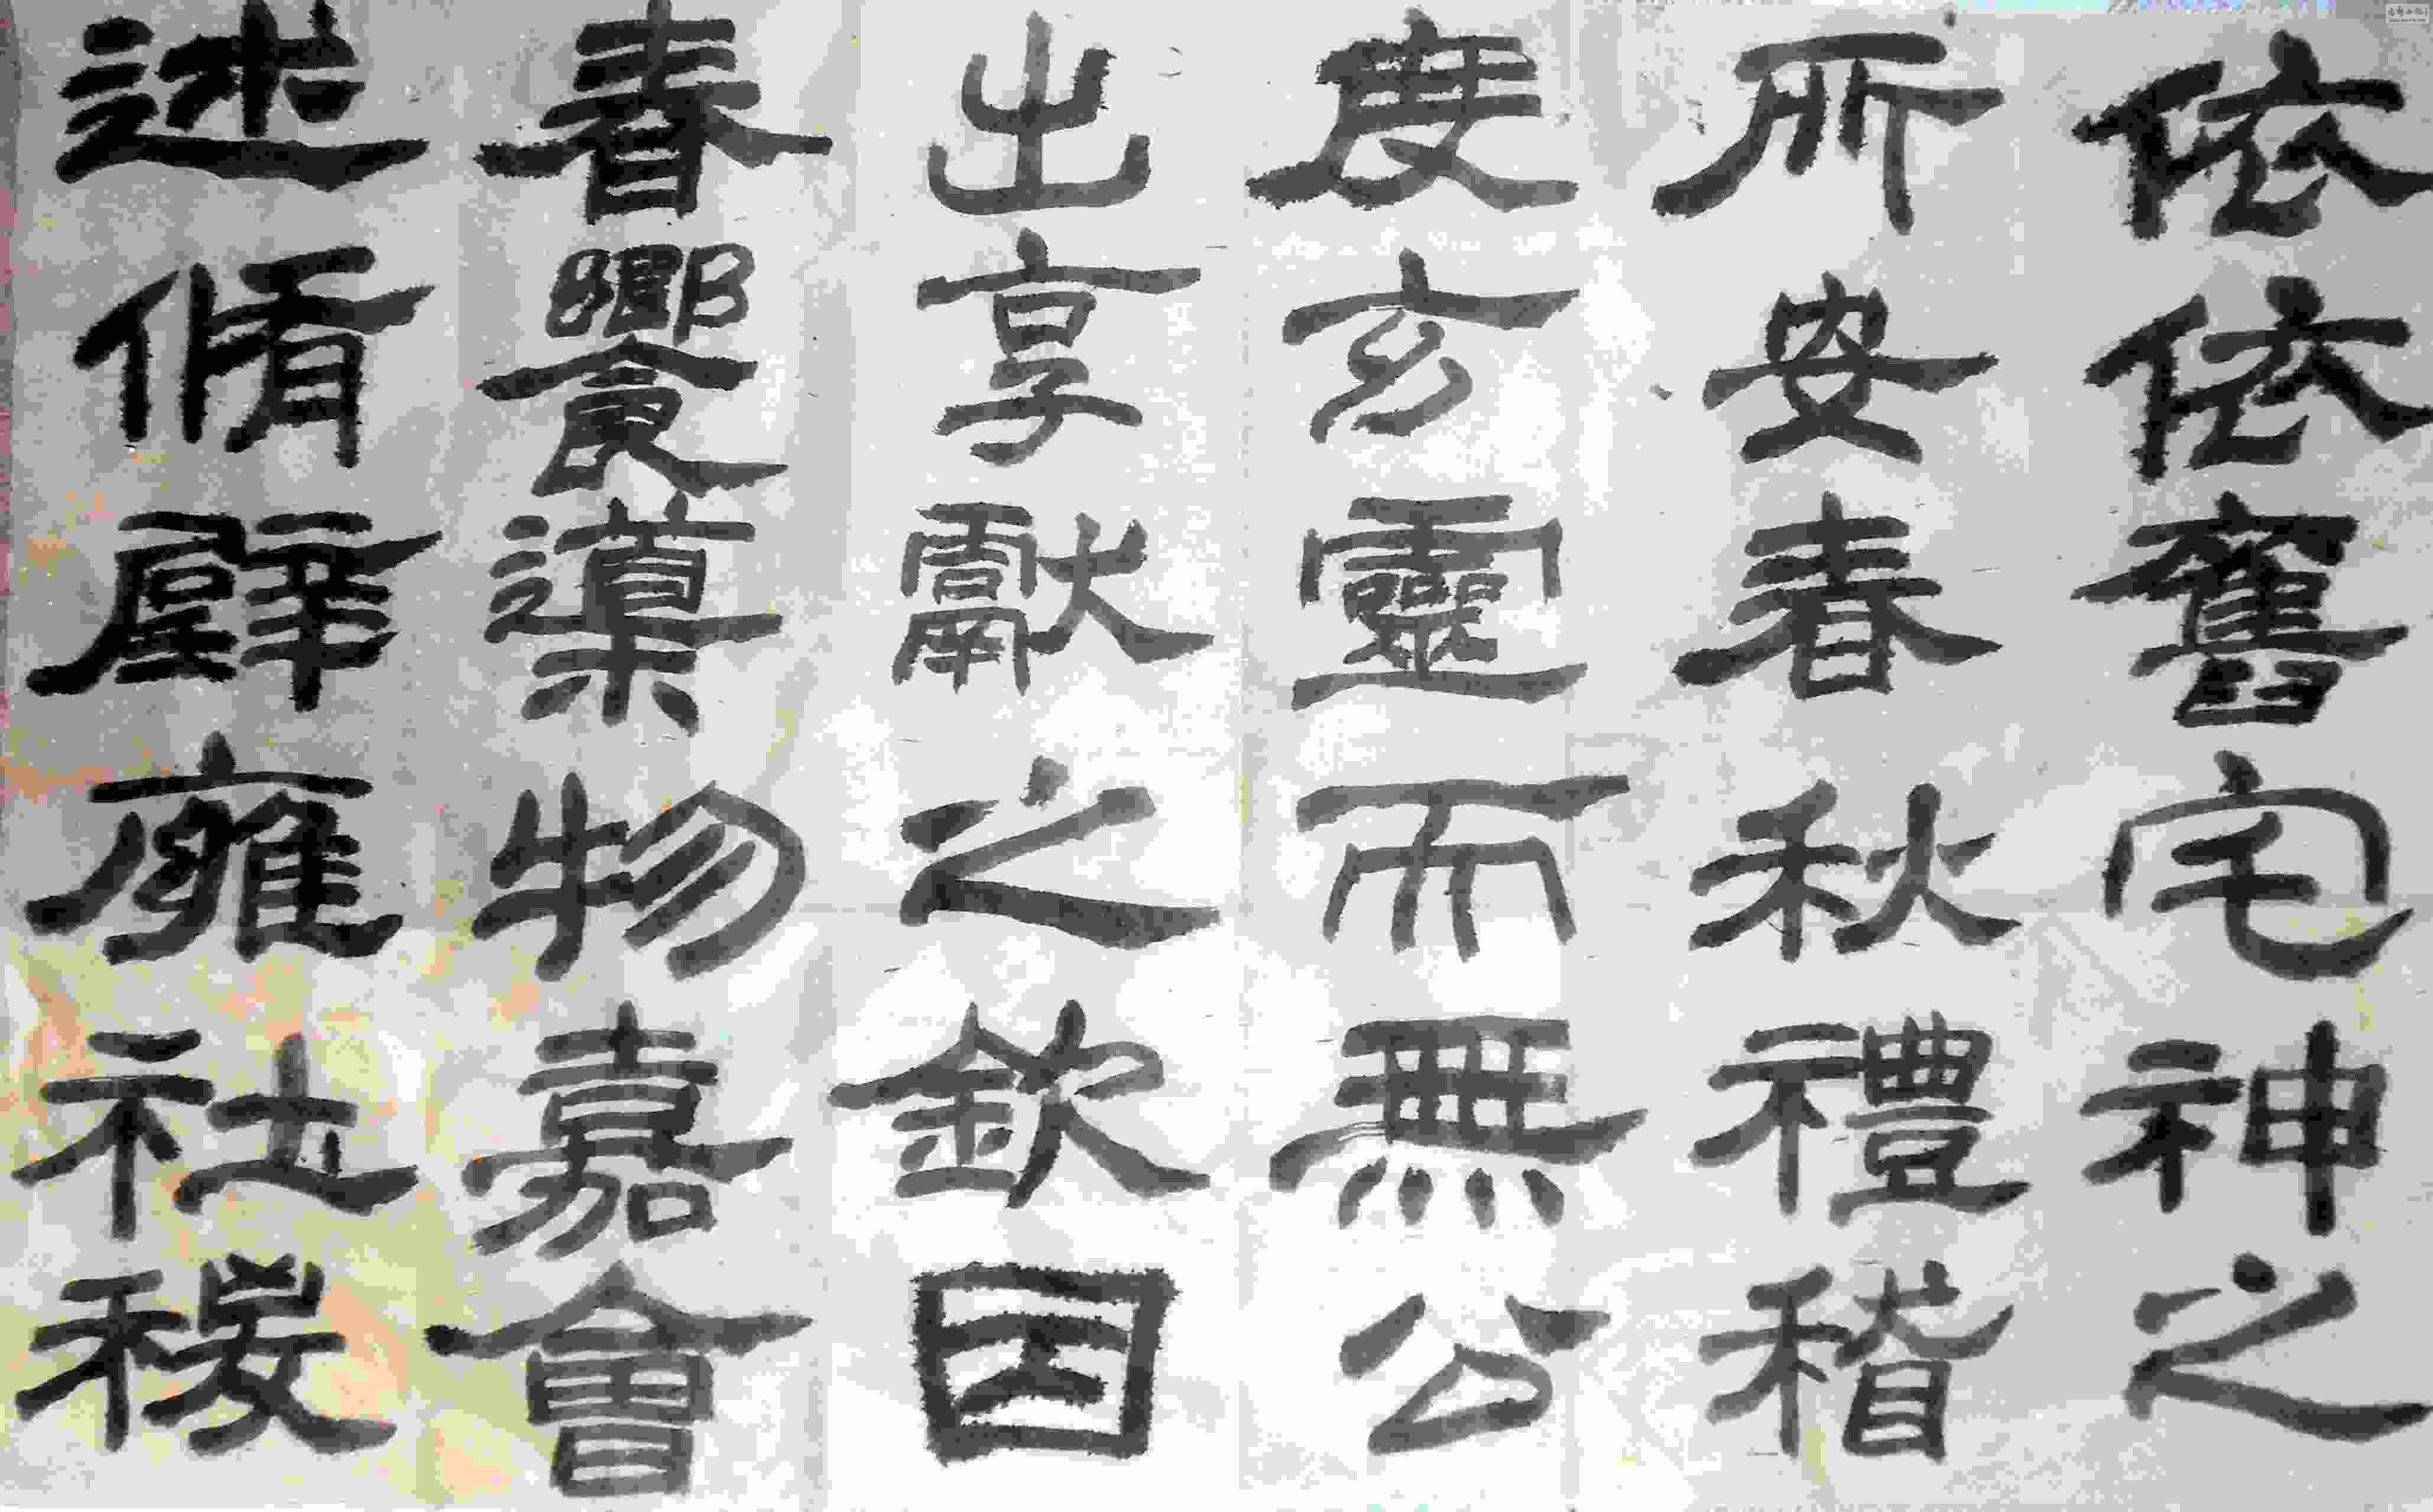 依依舊宅神之
所安春秋禮稽
度玄靈而無公
出享獻之欽因
春饗導物嘉會
述脩辟廱社稷